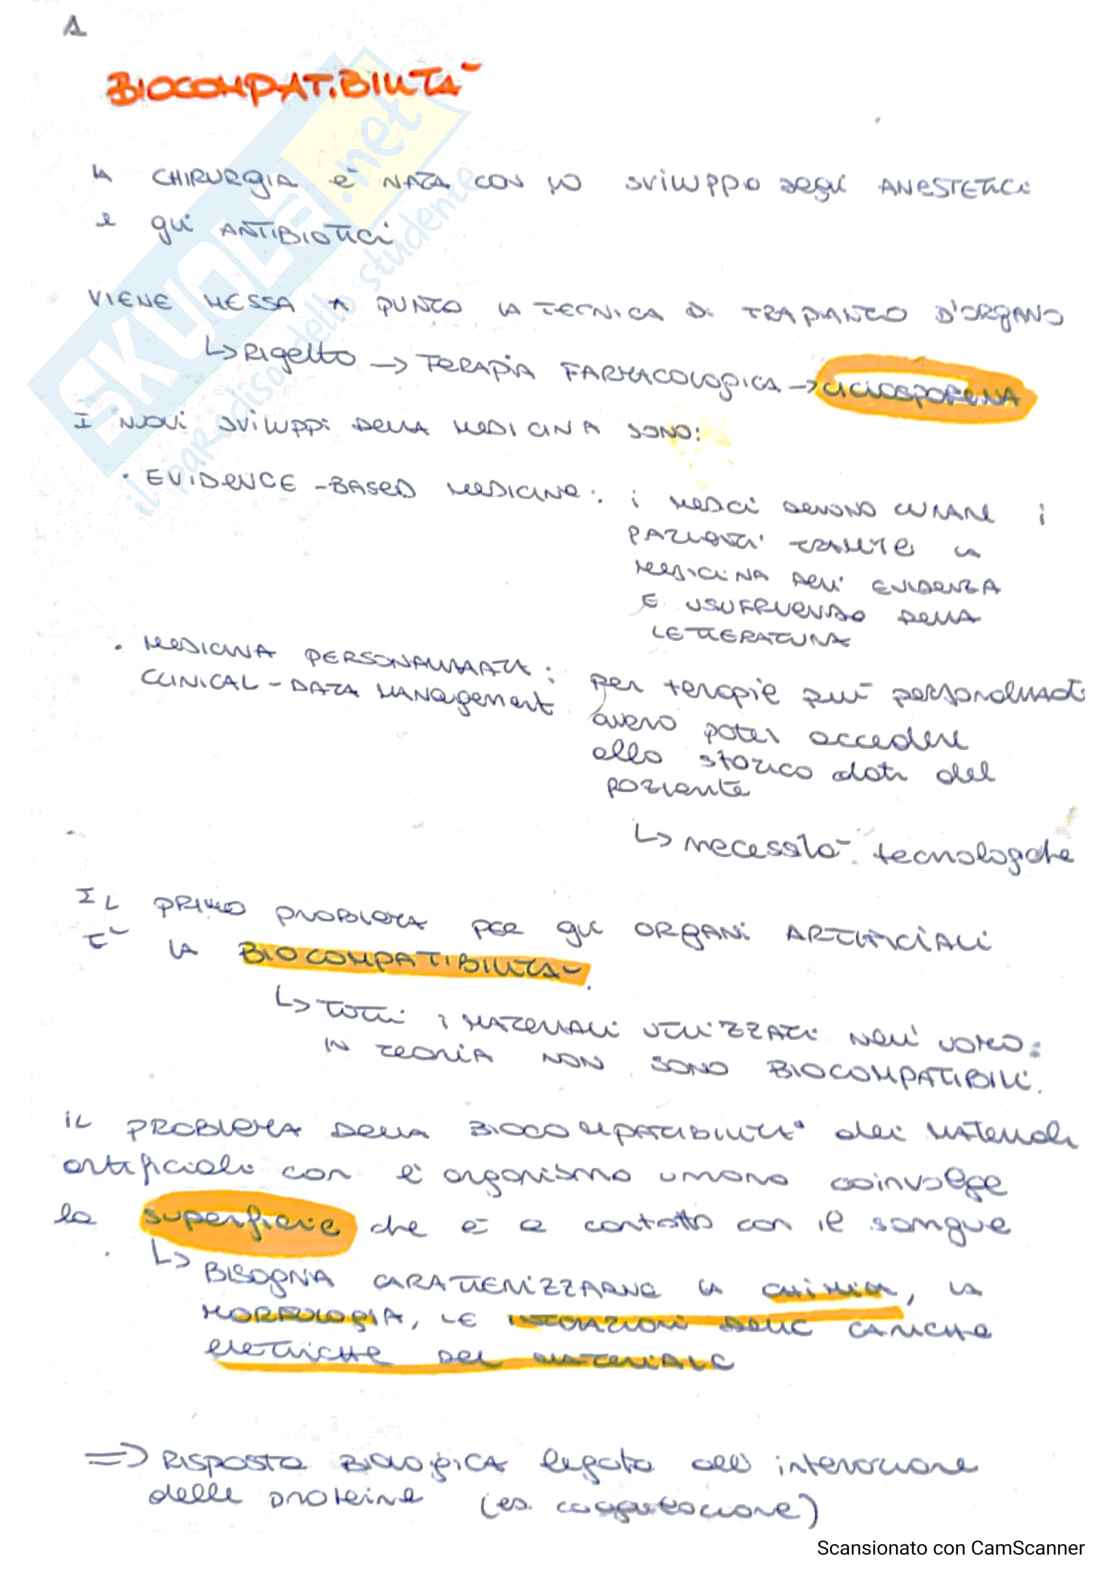 1
BIOCOMPATIBILITÀ
LA CHIRURGIA È NATA CON LO SVILUPPO DEGLI ANESTETICI
E gli ANTIBIOTICI
VIENE MESSA A PUNTO LA TECNICA DI TRAPIANTO D'ORGANO
↳ RIGETTO → TERAPIA FARMACOLOGICA → CICLOSPORINA
I NUOVI SVILUPPI DELLA MEDICINA SONO:
• EVIDENCE-BASED MEDICINE: i MEDICI DEVONO CURARE i
PAZIENTI TRAMITE LA
MEDICINA DELL'EVIDENZA
E USUFRUENDO DELLA
LETTERATURA
• MEDICINA PERSONALIZZATA:
CLINICAL-DATA MANAGEMENT
per terapie più personalizzati
avero poter accedere
allo storico dati del
paziente
↳ necessità tecnologiche
IL PRIMO PROBLEMA PER gli ORGANI ARTIFICIALI
È LA BIOCOMPATIBILITÀ.
↳ TUTTI I MATERIALI UTILIZZATI NELL'UOMO:
IN TEORIA NON SONO BIOCOMPATIBILI.
IL PROBLEMA DELLA BIOCOMPATIBILITÀ dei MATERIALI
artificiali con l'organismo umano coinvolge
la superficie che è a contatto con il sangue
↳ BISOGNA CARATTERIZZARNE LA CHIMICA, LA
MORFOLOGIA, LE INTERAZIONI DELLE CARICHE
ELETTRICHE DEL MATERIALE
⇒ RISPOSTA BIOLOGICA legata all'interazione
delle proteine (es. coagulazione)
SKUOLA.net
il paradiso dello studente
Scansionato con CamScanner